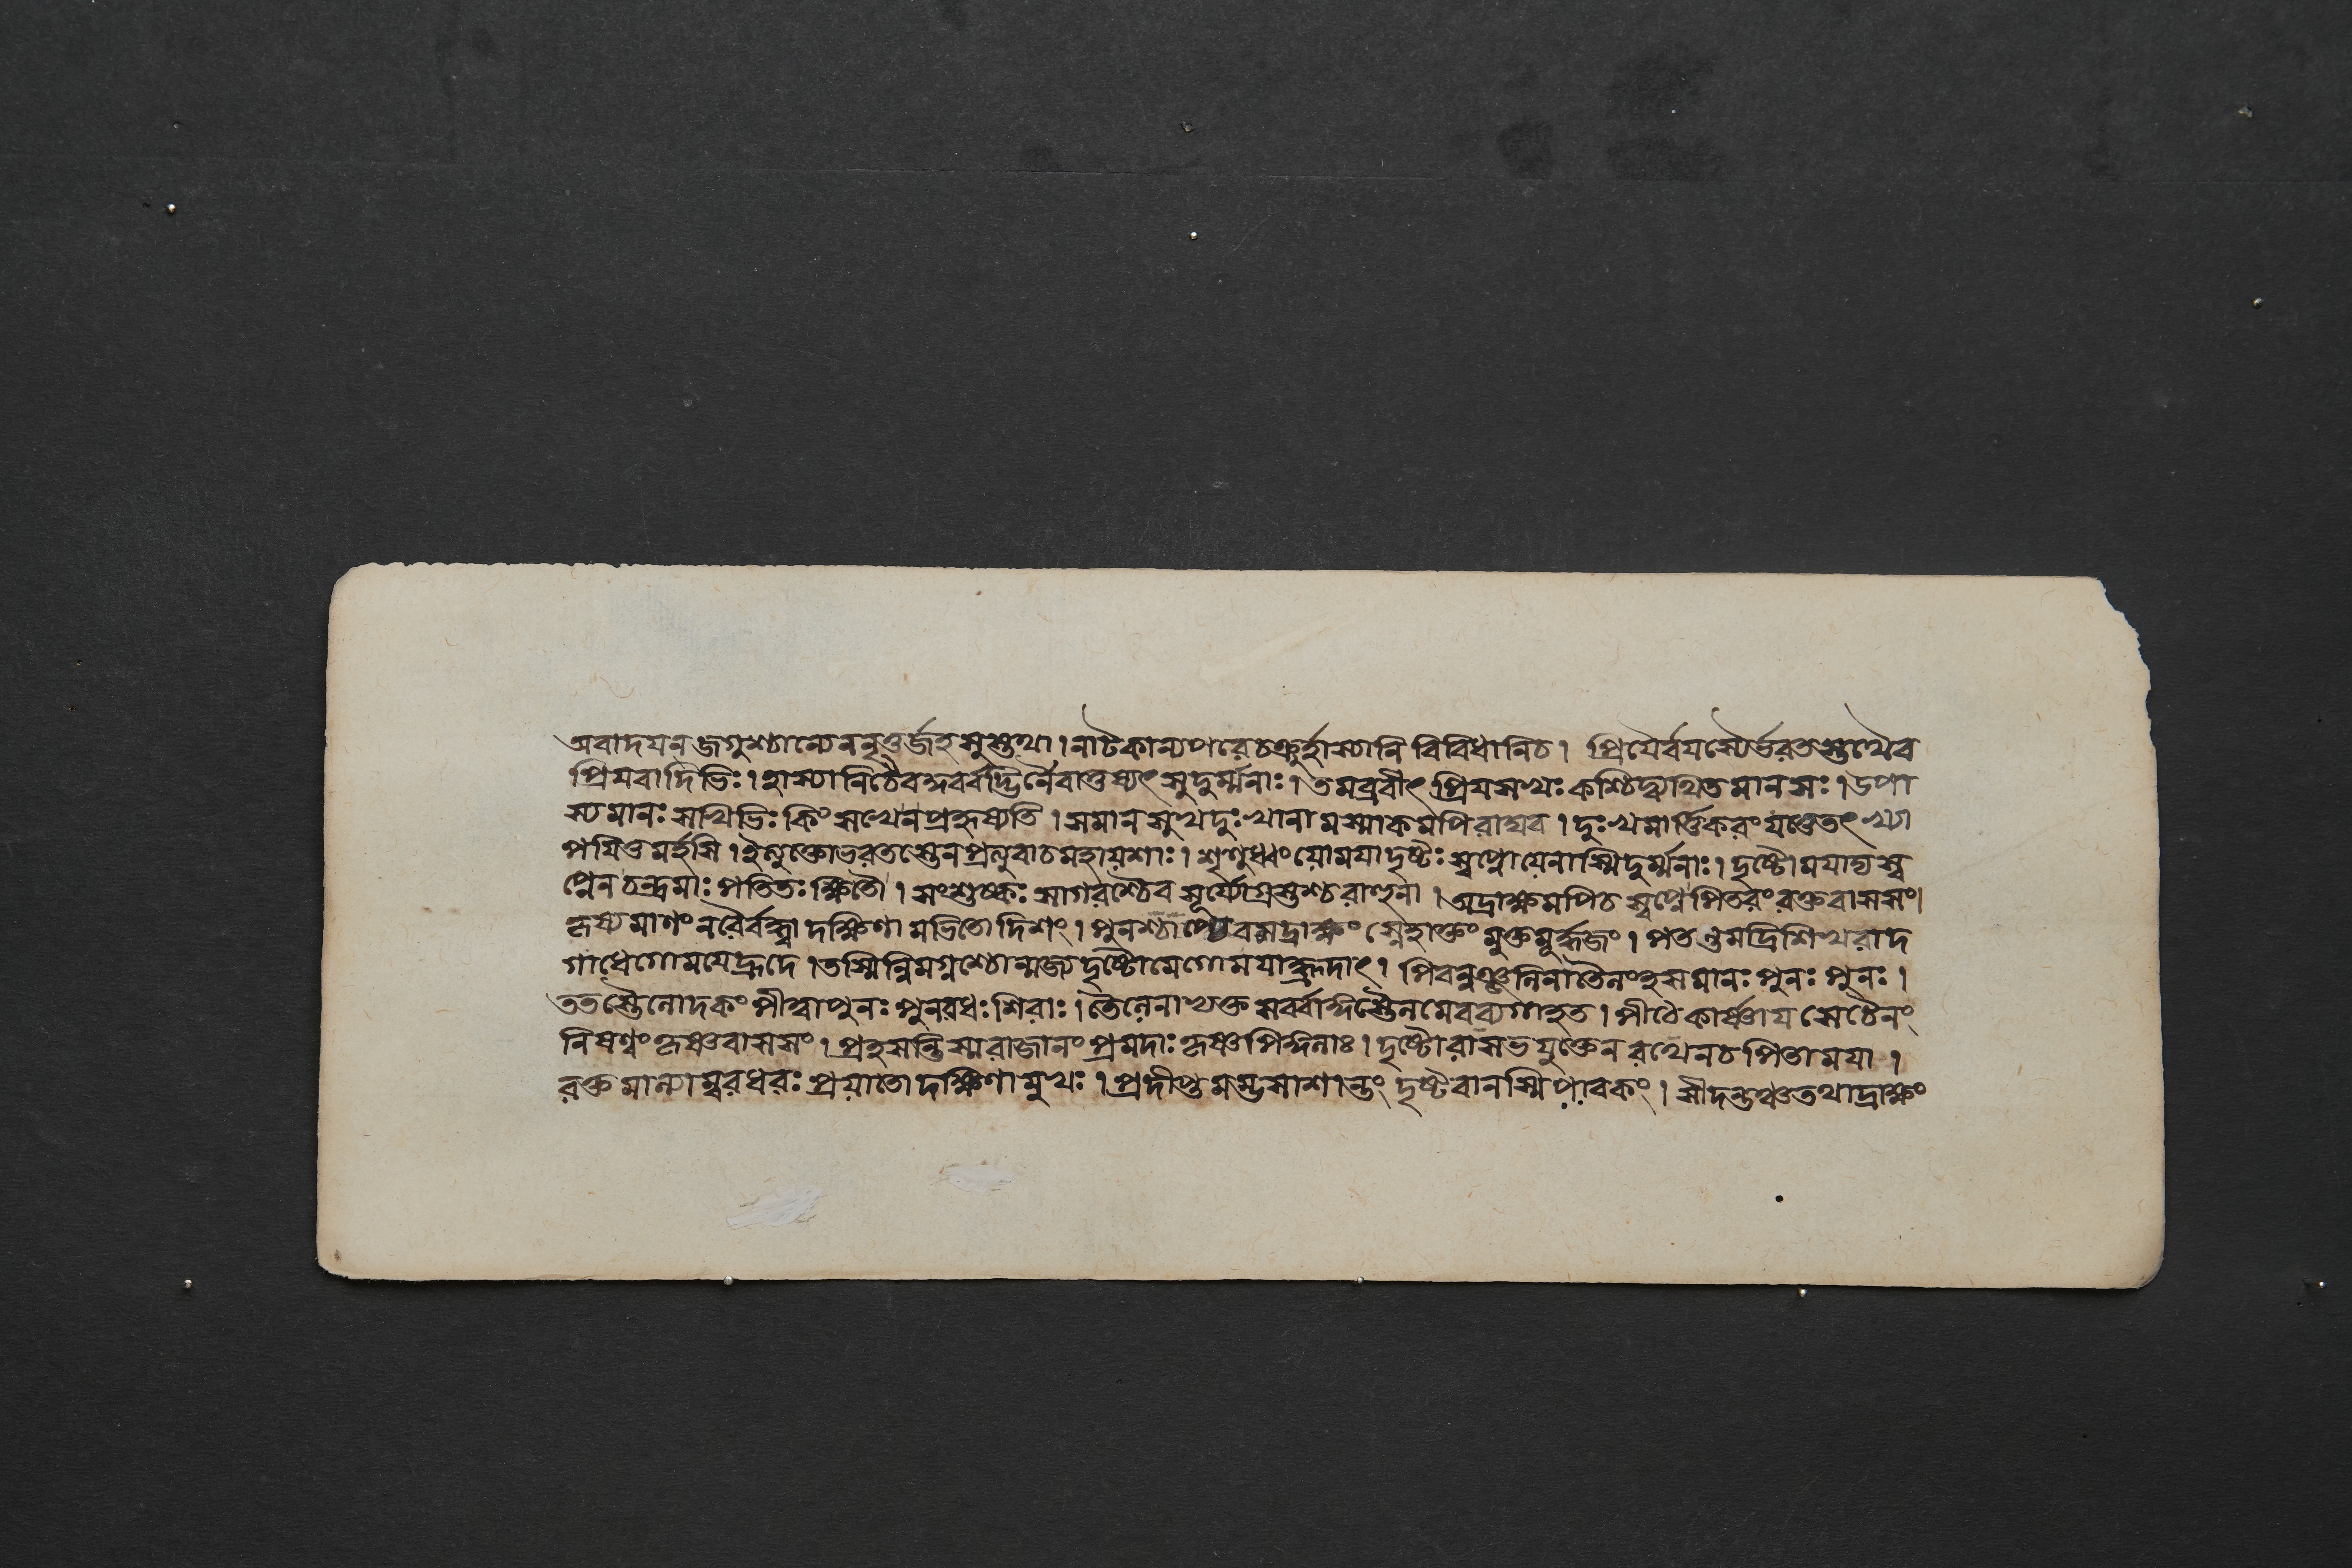 অবাদযন্ জগুশ্চান্যেননৃতুর্জহসুস্তথা।নাটকান্যপরেচক্রুর্হাস্যানি বিবিধানিচ। প্রিযৈর্বযস্যৈর্ভরতস্তথৈব
প্রিযবাদিভিঃ।হাস্যানিচৈবব্রুবর্বদ্ভির্নৈবাতুষ্যৎ সুদুর্ম্মনাঃ।তমব্রবীৎ প্রিযসখঃ কশ্চিদ্ব্যথিতমানসঃ।উপা
স্যমানঃ সখিভিঃ কিং সখেনপ্রহৃষ্যতি। সমানসুখদুঃখানামস্মাকমপিরাঘব। দুঃখমার্ত্তিকরং যত্তেতৎ খ্যা
পযিতুমর্হসি।ইত্যুক্তোভরতস্তেনপ্রত্যুবাচমহাযশাঃ। শৃণুধ্বং যোমযাদৃষ্টঃ স্বপ্নোযেনাস্মিদুর্ম্মনাঃ।দৃষ্টোমযাদ্যস্ব
প্নেনচন্দ্রমাঃ পতিতঃ ক্ষিতৌ। সংশুষ্কঃ সাগরশ্চৈব সূর্য্যোগ্রস্তশ্চরাহুনা।অদ্রাক্ষমপিচ স্বপ্নে পিতরং রক্তবাসসং।
কৃষ্যমাণং নরৈর্বদ্ধ্বা দক্ষিণামভিতোদিশং। পুনশ্চাপ্যেবমদ্রাক্ষং স্নেহাক্তং মুক্তমূর্দ্ধজং। পতন্তমদ্রিশিখরাদ
গাধেগোমযেহ্রদে।তস্মিন্নিমগ্নশ্চোন্মজ্য দৃষ্টোমেগোমযাহ্রদাৎ। পিবন্নঞ্জলিনাতৈলং হসমানঃ পুনঃ পুনঃ।
ততস্তৈলোদকং পীত্বাপুনঃ পুনরধঃশিরাঃ।তৈলেনাভ্যক্তসর্ব্বাঙ্গস্তৈলমেবব্যগাহত। পীঠেকার্ষ্ণাযসেচৈনং
নিষণ্ণং কৃষ্ণবাসসং।প্রহসন্তি স্মরাজানং প্রমদাঃ কৃষ্ণপিঙ্গলাঃ।দৃষ্টোরাসভযুক্তেন রথেনচপিতামযা।
রক্তমাল্যাম্বরধরঃ প্রযাতোদক্ষিণামুখঃ।প্রদীপ্তমম্ভসাশান্তং দৃষ্টবানস্মিপাবকং।সীদন্তঞ্চতথাদ্রাক্ষং